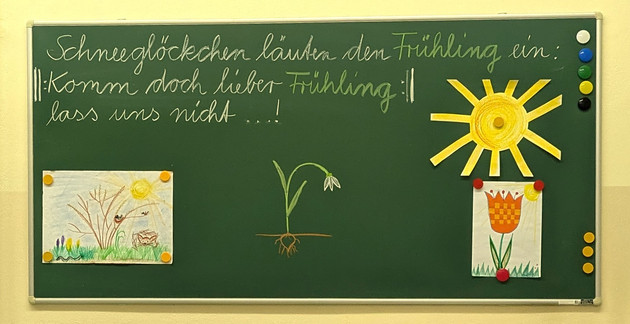 Schneeglöckchen läuten den Frühling ein:
‖:Komm doch lieber Frühling:‖
lass uns nicht ...!